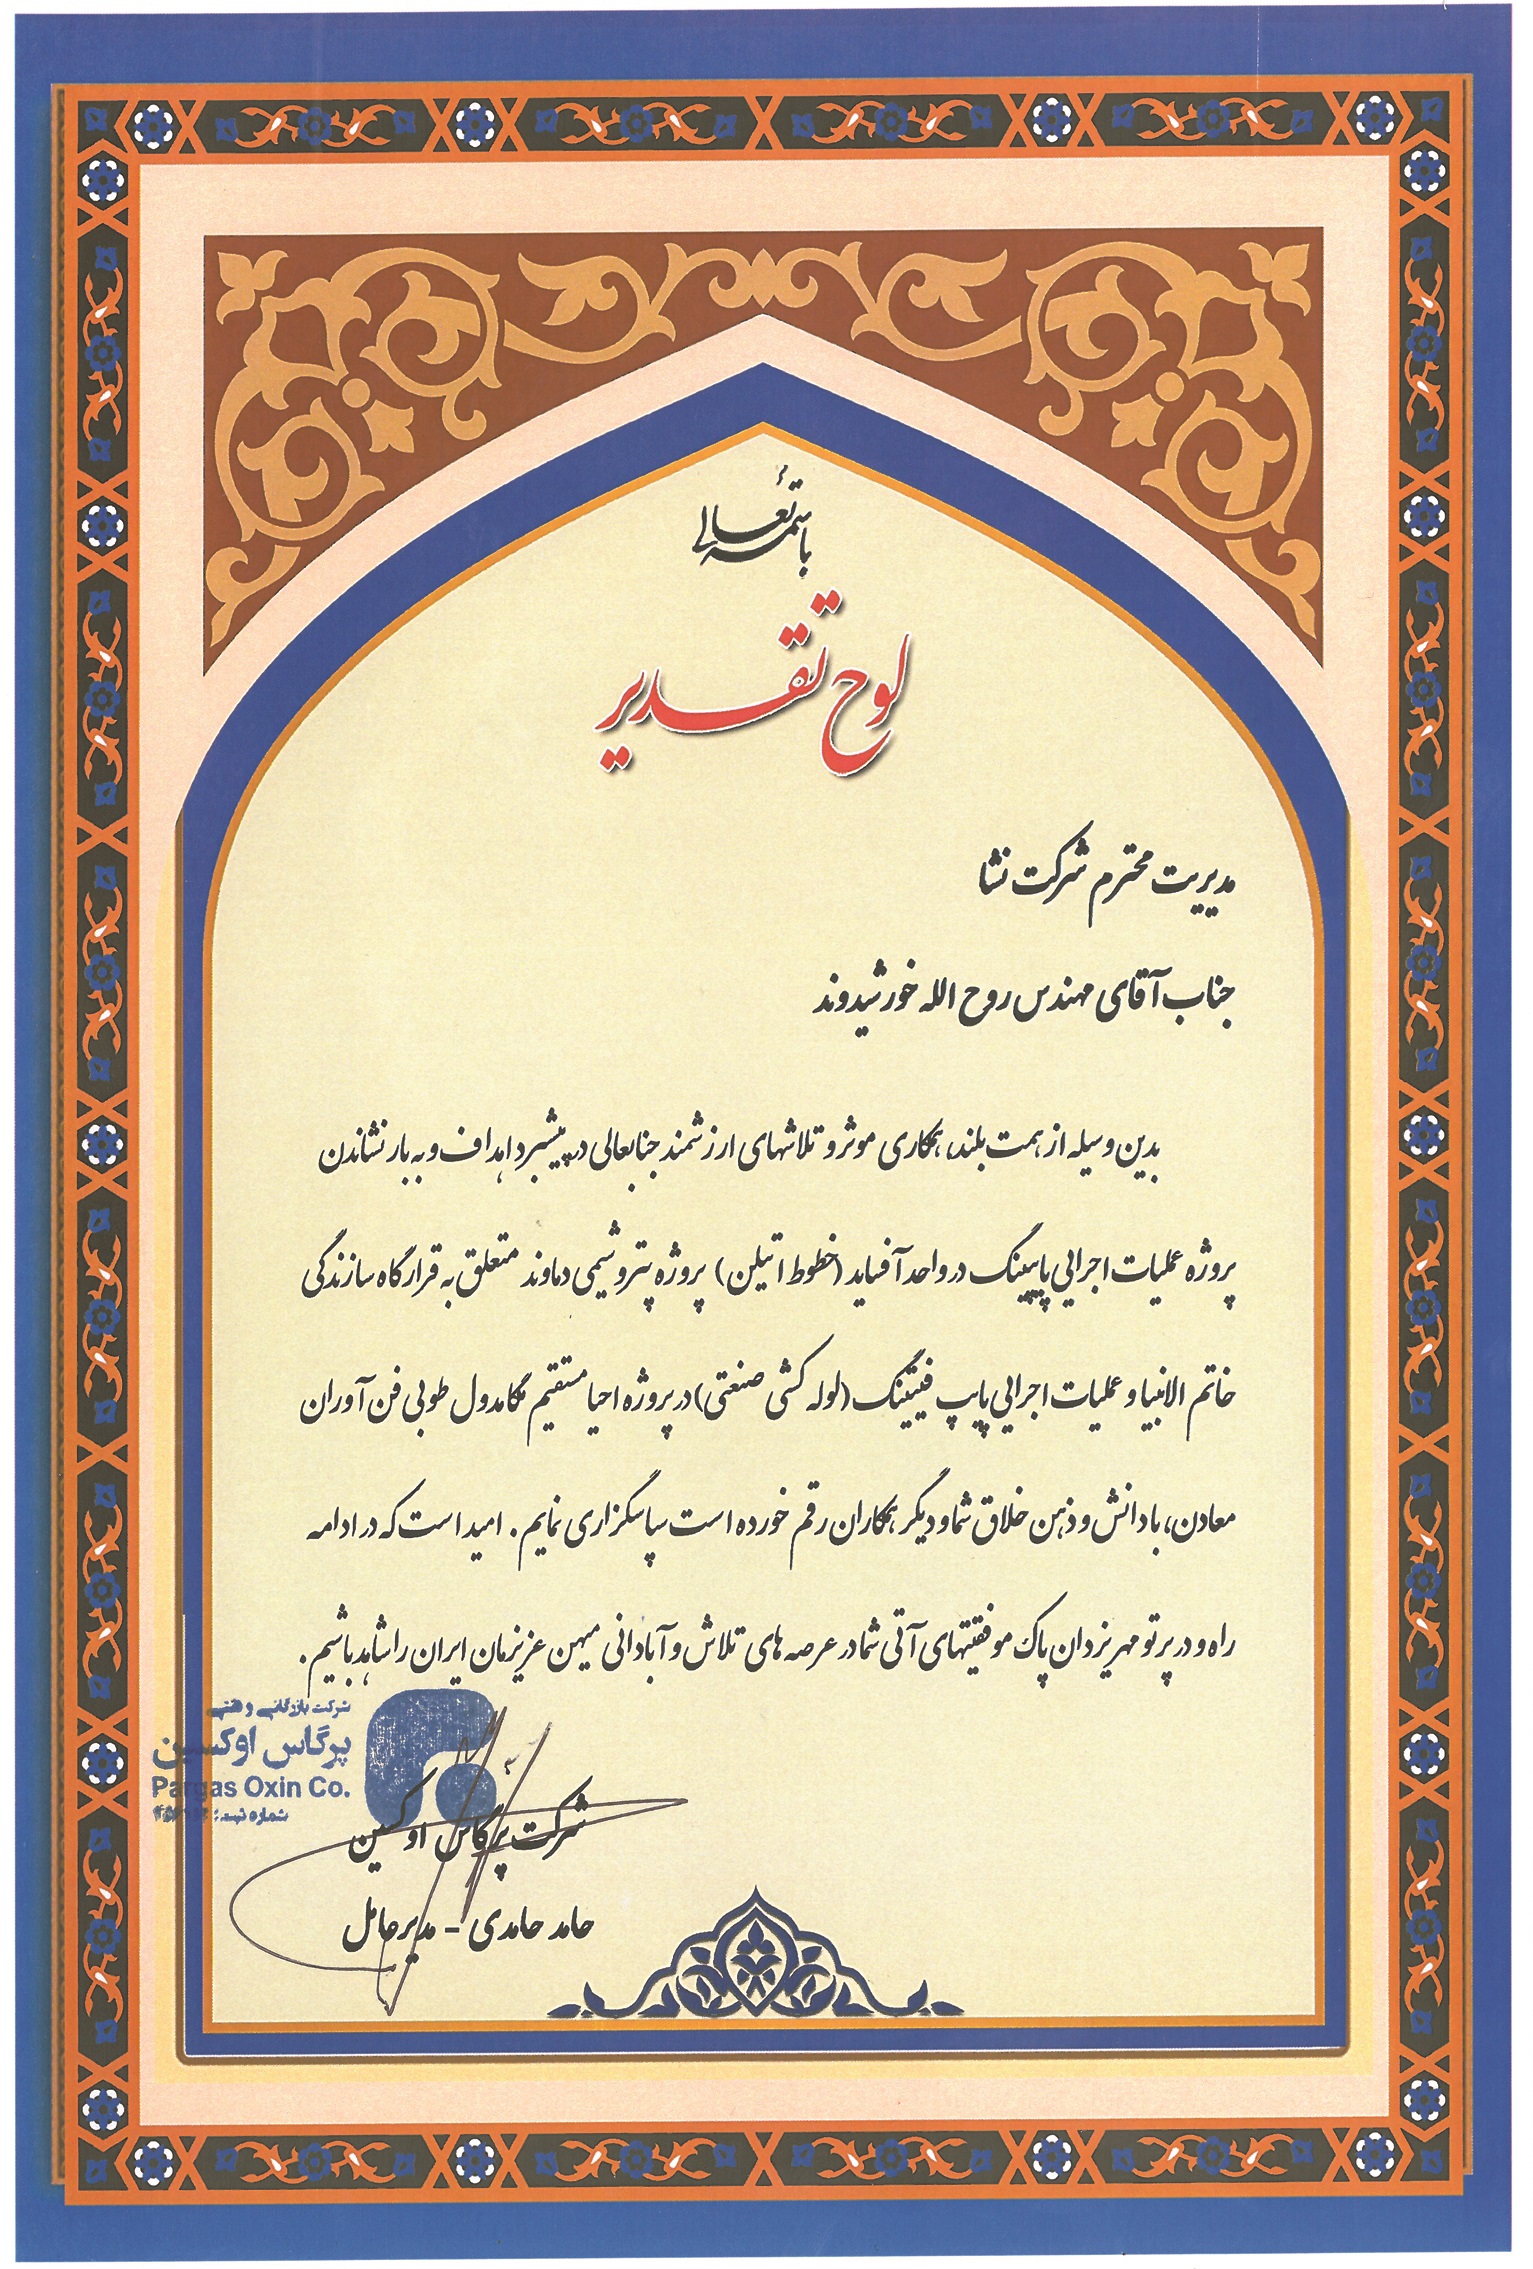 باسمه تعالی
لوح تقدیر
مدیریت محترم شرکت نشا
جناب آقای مهندس روح الله خورشیدوند
بدین وسیله از همت بلند، همکاری موثر و تلاشهای ارزشمند جنابعالی در پیشبرد اهداف و به بار نشاندن
پروژه عملیات اجرایی پایپینگ در واحد آفساید (خطوط اتیلن) پروژه پتروشیمی دماوند متعلق به قرارگاه سازندگی
خاتم الانبیا و عملیات اجرایی پایپ فیتینگ (لوله کشی صنعتی) در پروژه احیا مستقیم مگامدول طوبی فن آوران
معادن، با دانش و ذهن خلاق شما و دیگر همکاران رقم خورده است سپاسگزاری نمایم. امید است که در ادامه
راه و در پرتو مهر یزدان پاک موفقیتهای آتی شما در عرصه های تلاش و آبادانی میهن عزیزمان ایران را شاهد باشیم.
شرکت بازرگانی و فنی
پرگاس اوکسین
Pargas Oxin Co.
شماره ثبت:
شرکت پرگاس اوکسین
حامد حامدی - مدیرعامل